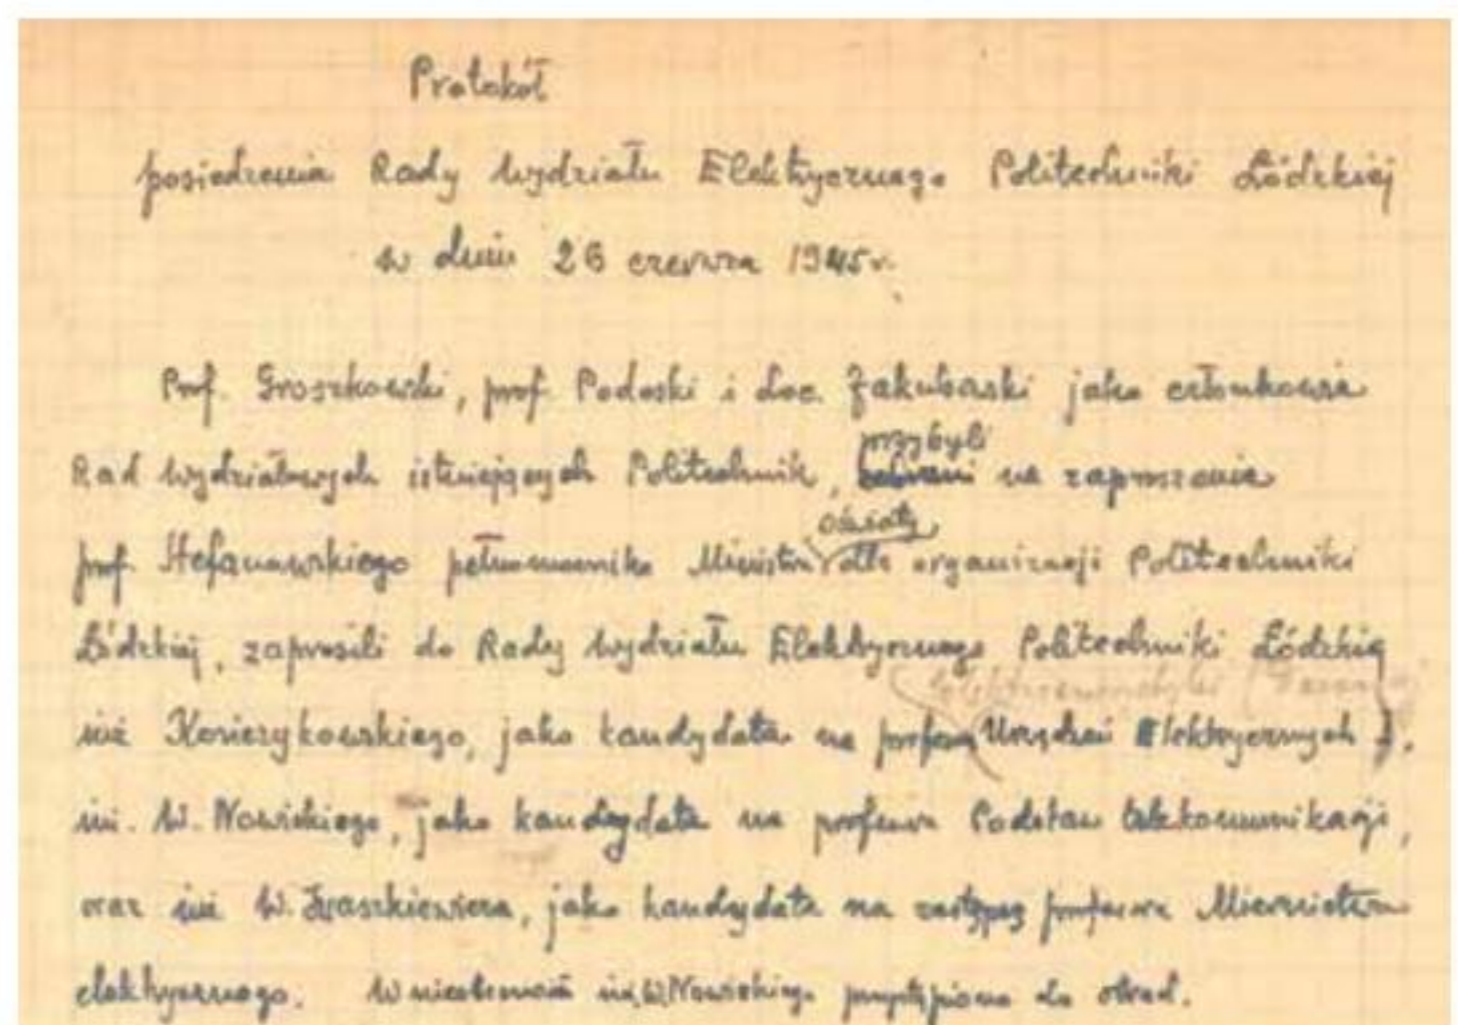 Protokół
posiedzenia Rady Wydziału Elektrycznego Politechniki Łódzkiej
w dniu 26 czerwca 1945 r.
Prof. Groszkowski, prof. Podoski i doc. Jakubowski jako członkowie
przybyli
Rad Wydziałowych istniejących Politechnik, na zaproszenie
Oświaty
prof. Stefanowskiego pełnomocnika Ministra dla organizacji Politechniki
Łódzkiej, zaprosili do Rady Wydziału Elektrycznego Politechniki Łódzkiej
inż Konieczykowskiego, jako kandydata na profesora Urządzeń Elektrycznych I,
inż. W. Nowickiego, jako kandydata na profesora Podstaw telekomunikacji,
oraz inż W. Iwaszkiewicza, jako kandydata na zastępcę profesora Miernictwa
elektrycznego. W nieobecności inż W. Nowickiego przystąpiono do obrad.